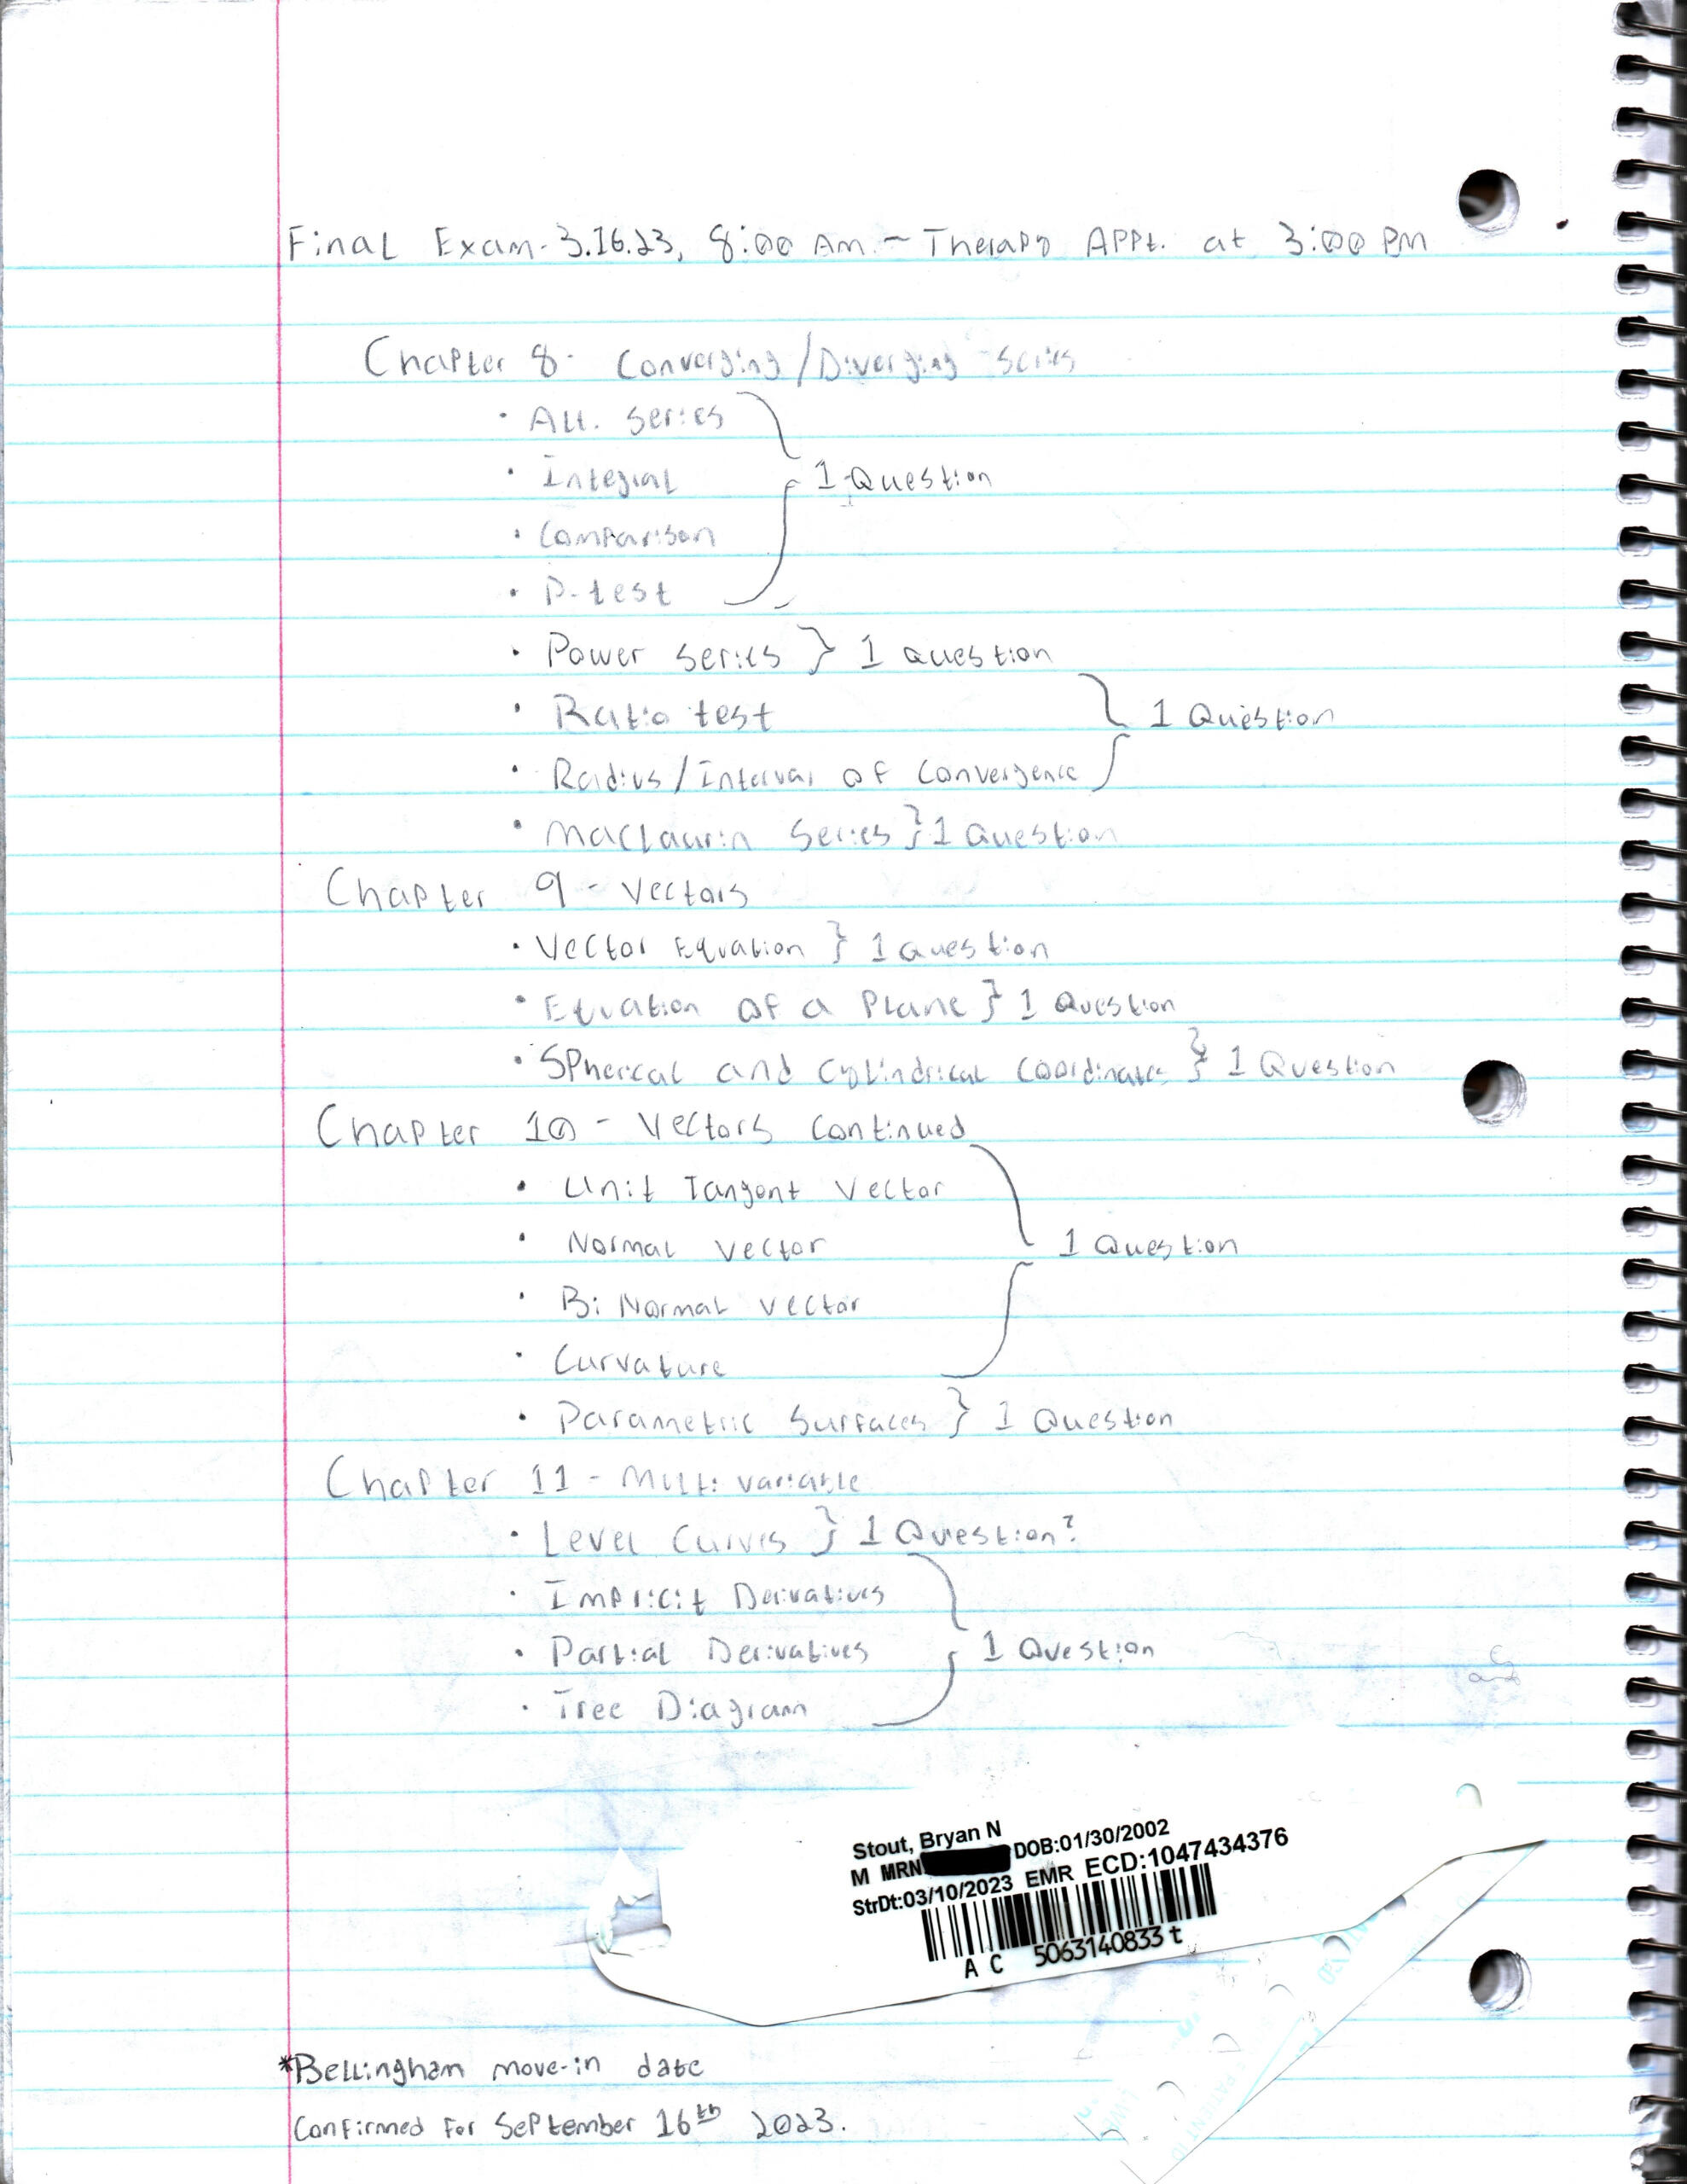 Final Exam - 3.16.23, 8:00 AM - Therapy APPt. at 3:00 PM
Chapter 8 - Converging/Diverging Series
• Alt. Series
• Integral
1 Question
• Comparison
• P-test
• Power Series } 1 Question
• Ratio test
1 Question
• Radius/Interval of Convergence
• Maclaurin Series } 1 Question
Chapter 9 - Vectors
• Vector Equation } 1 Question
• Equation of a Plane } 1 Question
• Spherical and Cylindrical Coordinates } 1 Question
Chapter 10 - Vectors Continued
• Unit Tangent Vector
• Normal Vector
1 Question
• Bi Normal Vector
• Curvature
• Parametric Surfaces } 1 Question
Chapter 11 - Multi variable
• Level Curves } 1 Question?
• Implicit Derivatives
• Partial Derivatives
1 Question
• Tree Diagram
Stout, Bryan N
M MRN DOB:01/30/2002
StrDt:03/10/2023 EMR ECD:1047434376
A C 5063140833 t
*Bellingham move-in date
Confirmed for September 16th 2023.